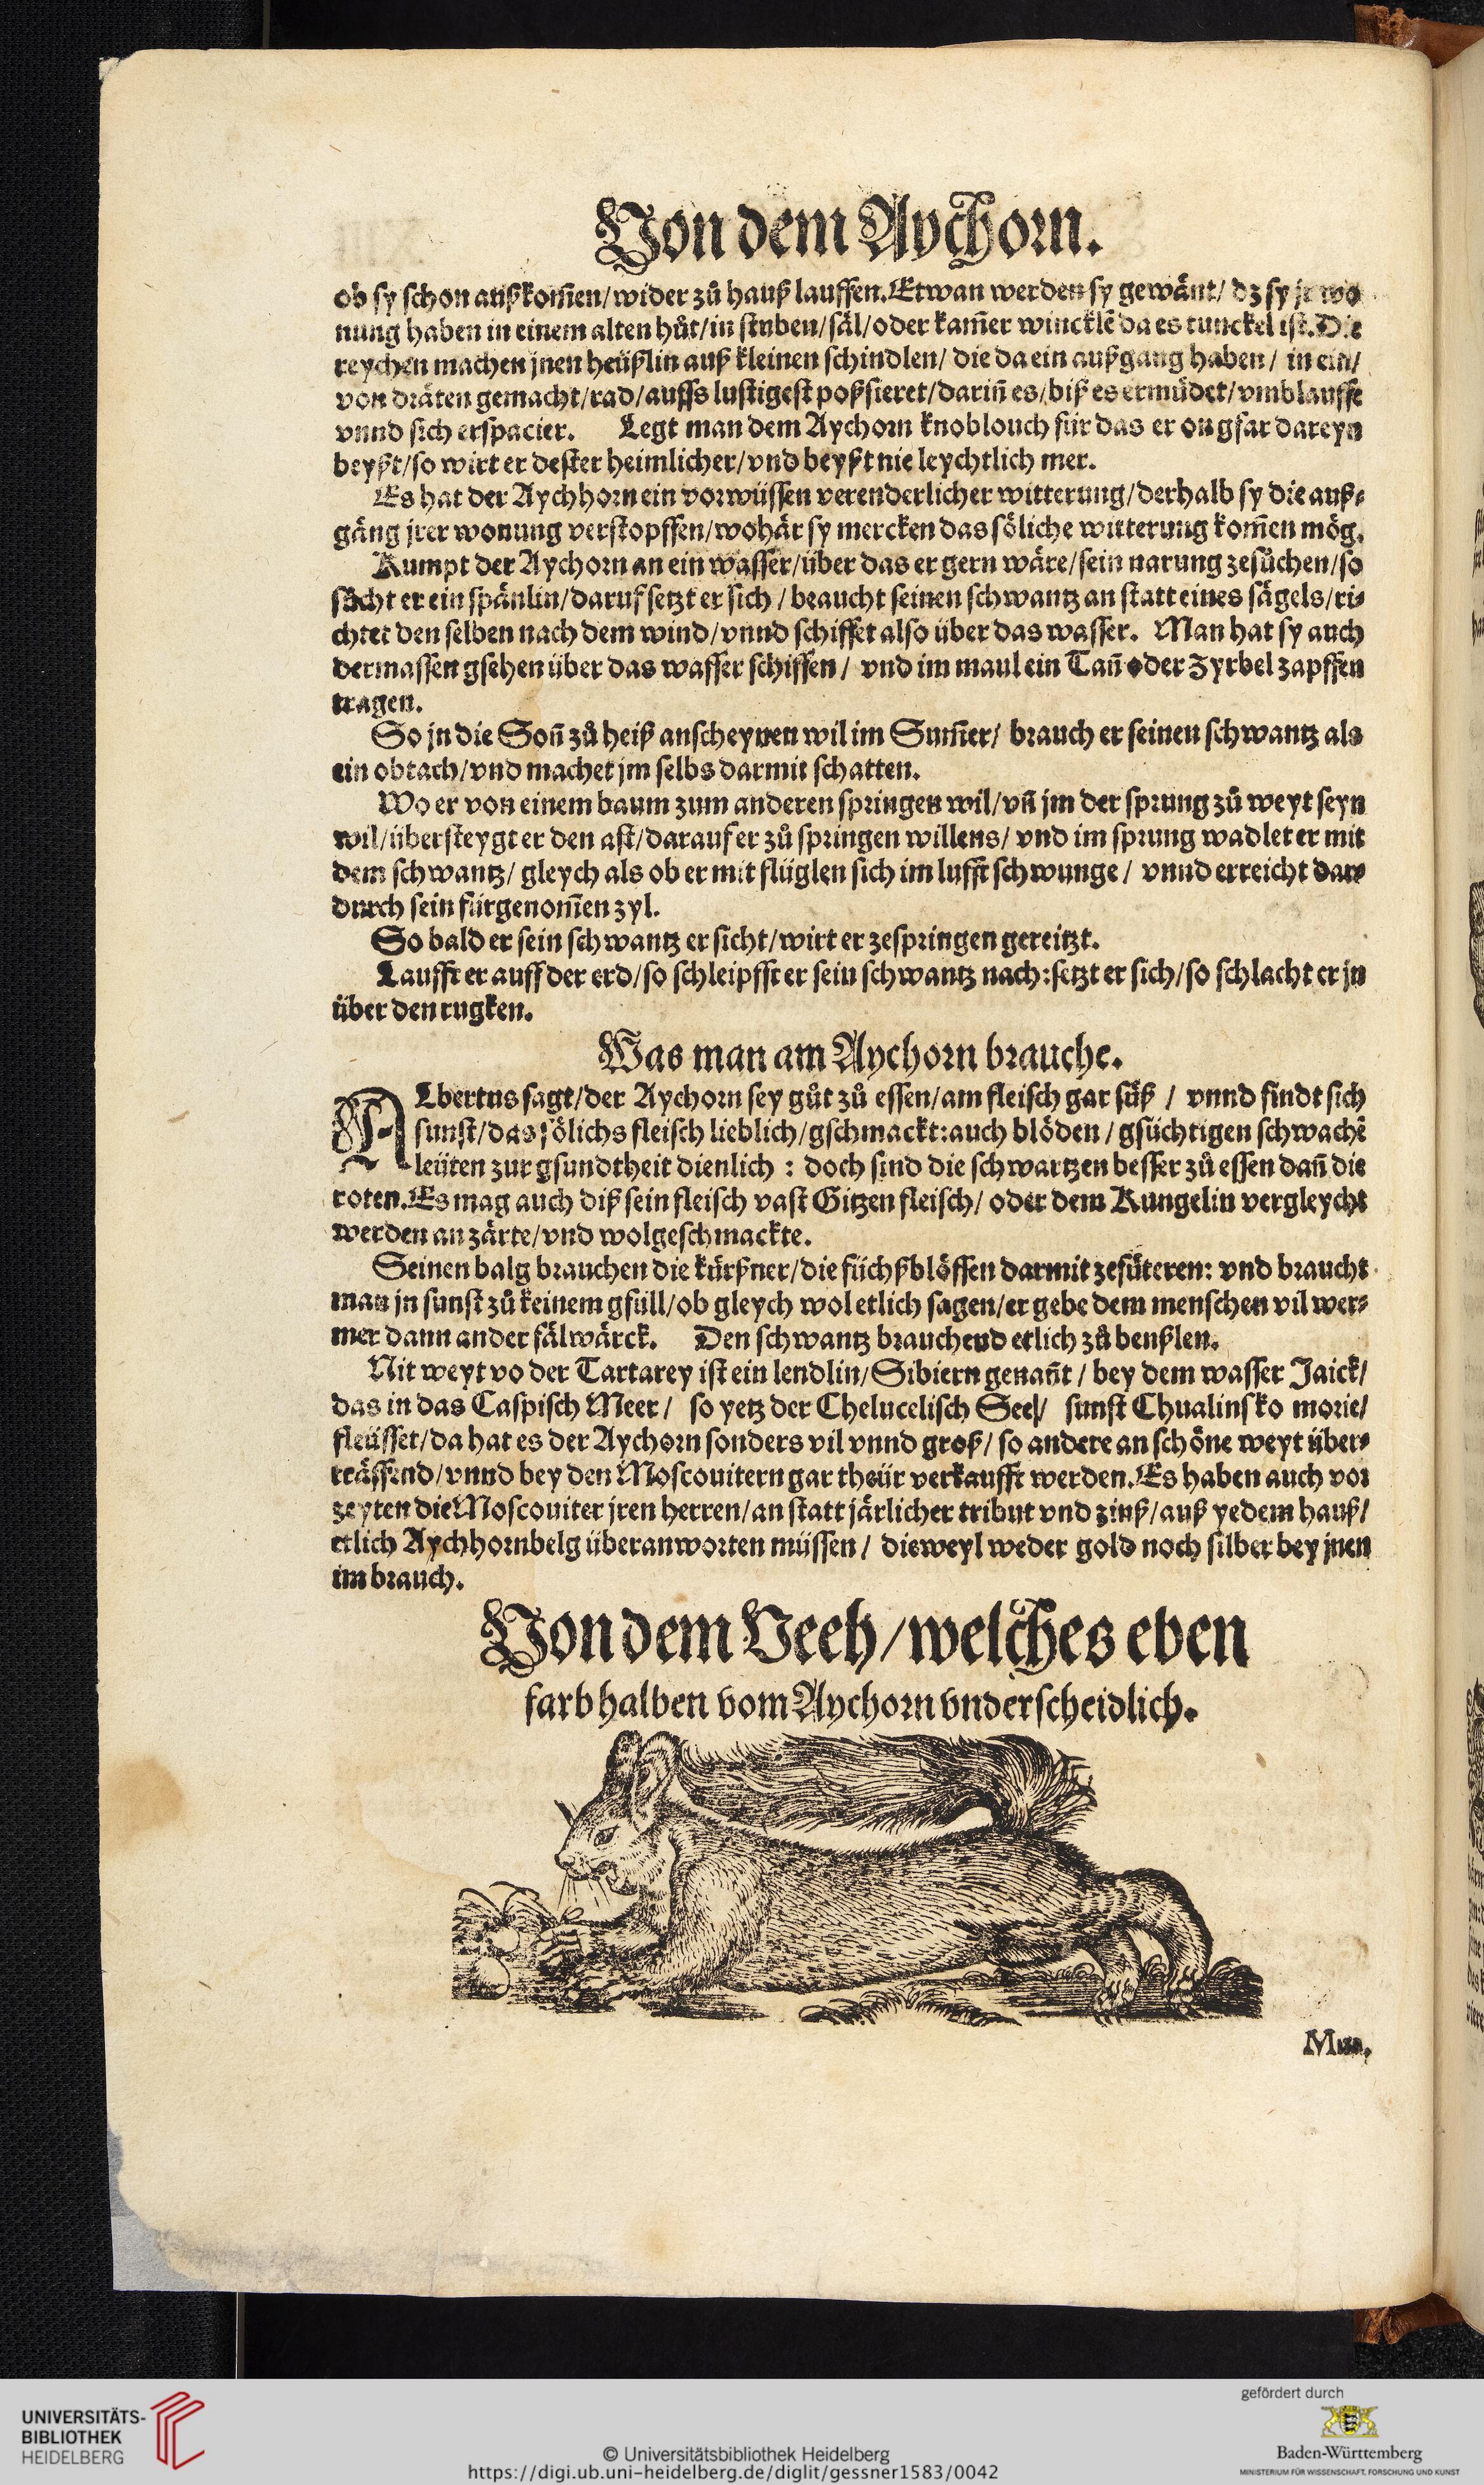 Von dem Aychorn.
ob sy schon außkom̃en/wider zů hauß lauffen.Etwan werden sy gewänt/ dz sy jr wo
nung haben in einem alten hůt/in stuben/säl/oder kam̃er wincklẽ da es tunckel ist.Die
reychen machen jnen heüßlin auß kleinen schindlen/ die da ein außgang haben/ in ein/
von dräten gemacht/rad/auffs lustigest poßsieret/dariñ es/biß es ermüdet/vmblauffe
vnnd sich erspacier. Legt man dem Aychorn knoblouch für das er ongfar dareyn
beyßt/so wirt er dester heimlicher/vnd beyßt nie leychtlich mer.
Es hat der Aychhorn ein vorwüssen verenderlicher witterung/derhalb sy die auß⸗
gäng jrer wonung verstopffen/wohär sy mercken das söliche witterung kom̃en mög.
Kumpt der Aychorn an ein wasser/über das er gern wäre/sein narung zesůchen/so
sůcht er ein spänlin/daruf setzt er sich / braucht seinen schwantz an statt eines sägels/ri⸗
chtet den selben nach dem wind/vnnd schiffet also über das wasser. Man hat sy auch
dermassen gsehen über das wasser schiffen / vnd im maul ein Tañ oder Zyrbel zapffen
tragen.
So jn die Soñ zů heiß anscheynen wil im Sum̃er/ brauch er seinen schwantz als
ein obtach/vnd machet jm selbs darmit schatten.
Wo er von einem baum zum anderen springen wil/vñ jm der sprung zů weyt seyn
wil/übersteygt er den ast/darauf er zů springen willens/ vnd im sprung wadlet er mit
dem schwantz/ gleych als ob er mit flüglen sich im lufft schwunge / vnnd erreicht dar⸗
durch sein fürgenom̃en zyl.
So bald er sein schwantz ersicht/wirt er zespringen gereitzt.
Laufft er auff der erd/so schleipfft er sein schwantz nach:setzt er sich/so schlacht er jn
über den rugken.
Was man am Aychorn brauche.
ALbertus sagt/der Aychorn sey gůt zů essen/am fleisch gar süß / vnnd findt sich
sunst/das sölichs fleisch lieblich/gschmackt:auch blöden / gsüchtigen schwachẽ
leüten zur gsundtheit dienlich : doch sind die schwartzen besser zů essen dañ die
roten.Es mag auch diß sein fleisch vast Gitzen fleisch/ oder dem Kungelin vergleycht
werden an zärte/vnd wolgeschmackte.
Seinen balg brauchen die kürßner/die füchßblöffen darmit zefüteren: vnd braucht
man jn sunst zů keinem gfüll/ob gleych wol etlich sagen/er gebe dem menschen vil wer⸗
mer dann ander fälwärck. Den schwantz brauchend etlich zů benßlen.
Nit weyt vo der Tartarey ist ein lendlin/Sibiern genañt / bey dem wasser Jaick/
das in das Caspisch Meer / so yetz der Chelucelisch See/ sunst Chualinsko morie/
fleüsset/da hat es der Aychorn sonders vil vnnd groß/ so andere an schöne weyt über⸗
träffend/vnnd bey den Moscouitern gar theür verkaufft werden.Es haben auch vor
zeyten die Moscouiter jren herren/an statt järlicher tribut vnd zinß/auß yedem hauß/
etlich Aychhornbelg überanworten müssen / dieweyl weder gold noch silber bey jnen
im brauch.
Von dem Veeh/welches eben
farb halben vom Aychorn vnderscheidlich.
UNIVERSITÄTS-
BIBLIOTHEK
HEIDELBERG
© Universitätsbibliothek Heidelberg
https://digi.ub.uni-heidelberg.de/diglit/gessner1583/0042
gefördert durch
Baden-Württemberg
MINISTERIUM FÜR WISSENSCHAFT, FORSCHUNG UND KUNST